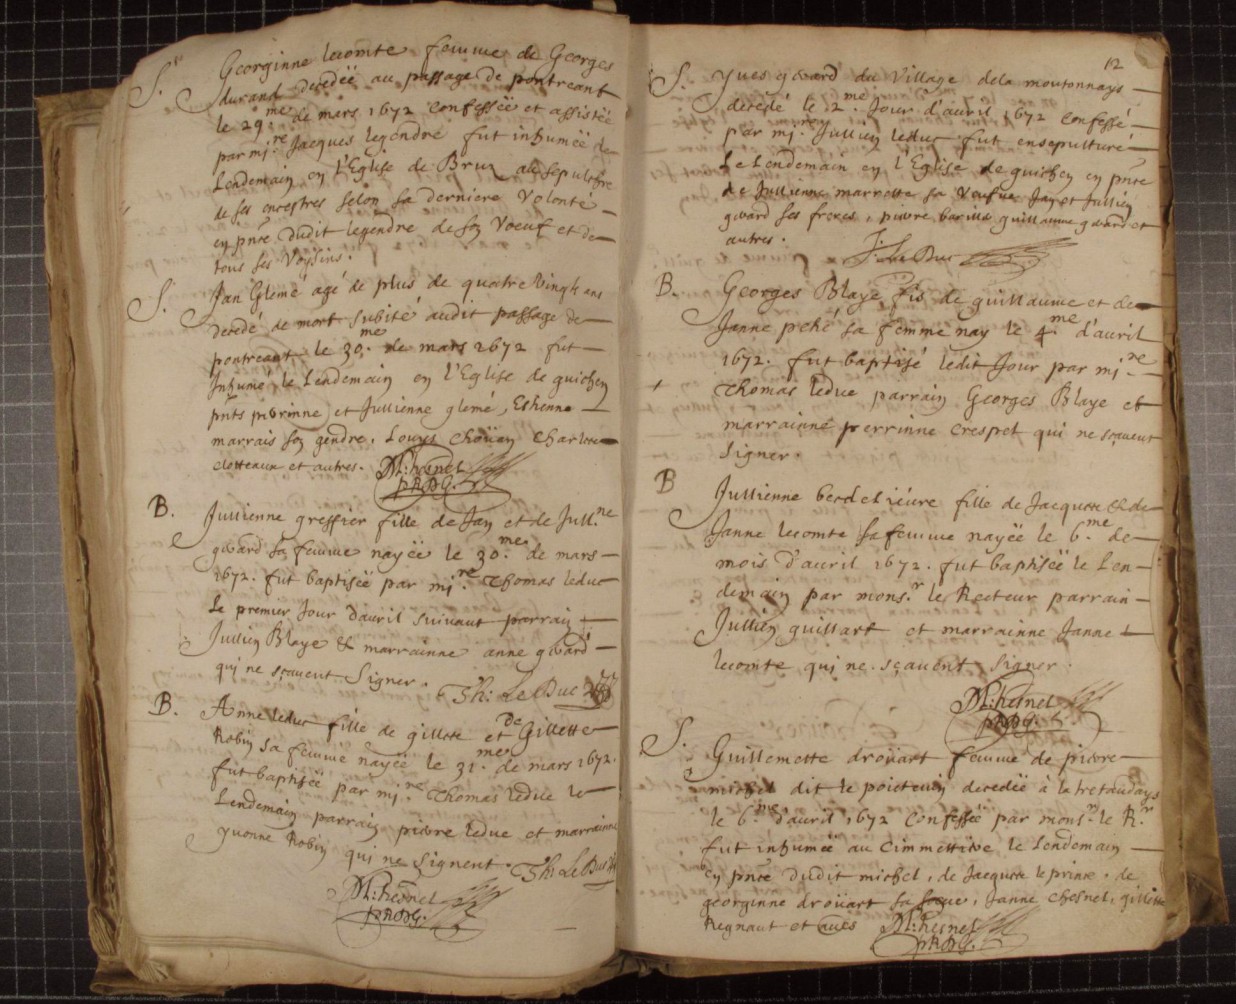 S. Georginne lecomte femme de Georges
durand decedëe au passage de pontreant
le 29.me de mars 1672 confessëe et assistëe
par mi.re Jacques legendre fut inhumëe le
Lendemain en l'Eglise de Bruz au sepulchre
de ses encestres selon sa derniere volonté
en pnce dudit legendre de son voeuf et de
tous ses voysins.
S. Jan Glemé agé de plus de quatre vingts ans
decedé de mort subite audit passage de
pontreant le 30.me de mars 1672 fut
Inhumé le Lendemain en l'Eglise de guichen
pnts perrinne et Jullienne glemé, Estienne
marrais son gendre, Louys Choüan Charlotte
clotteaux et autres. M: chesnel
pRDG.
B. Jullienne greffier fille de Jan et de Jull.ne
gicard sa femme nayëe le 30.me de mars
1672. fut baptisëe par mi.re Thomas leduc
Le premier Jour d'auril suivant parrain
Jullien Blaye & marrainne anne gicard
qui ne sçauent signer. Th: LeDuc
B. Anne leduc fille de gillote et de Gillette
Robin sa femme nayëe le 31.me de mars 1672.
fut baptisëe par mi.re Thomas leduc le
Lendemain parrain pierre leduc et marrainne
yvonne Robin qui ne signent. Th: LeDuc
M: chesnel
pRDG.
12
S. Yues gicard du Village dela moutonnays
decedé le 2.me Jour d'auril 1672 confessé
par mi.re Jullien leduc fut ensepulturé
Le Lendemain en l'Eglise de guichen en pnce
de Jullienne marrette sa veufue Jan et Jullien
gicard ses freres, pierre guillaume gicard et
autres. J: LeDuc
B. Georges Blaye fis de guillaume et de
Janne peké sa femme nay le 4.me d'auril
1672. fut baptisé ledit Jour par mi.re
Thomas leduc parrain Georges Blaye et
marrainne perrinne Crespel qui ne sçauent
signer.
B Jullienne berdelieure fille de Jacques & de
Janne lecomte sa femme nayëe le 6.me de
mois d'auril 1672. fut baptisëe le Len-
demain par mons.r le Recteur parrain
Jullien guillart et marrainne Janne
lecomte qui ne sçauent signer.
M: chesnel
pRDG.
S. Guillemette droüart femme de pierre
michel dit le poicteuin decedëe à la tretaudays
le 6.me d'auril 1672 confessëe par mons.r le R.r
fut inhumëe au Cimmettiere le Lendemain
en pnce dudit michel, de Jacquette le prince, de
georginne droüart sa soeur, Janne Chesnel, gillette
Regnaut et aues M: chesnel
pRDG.